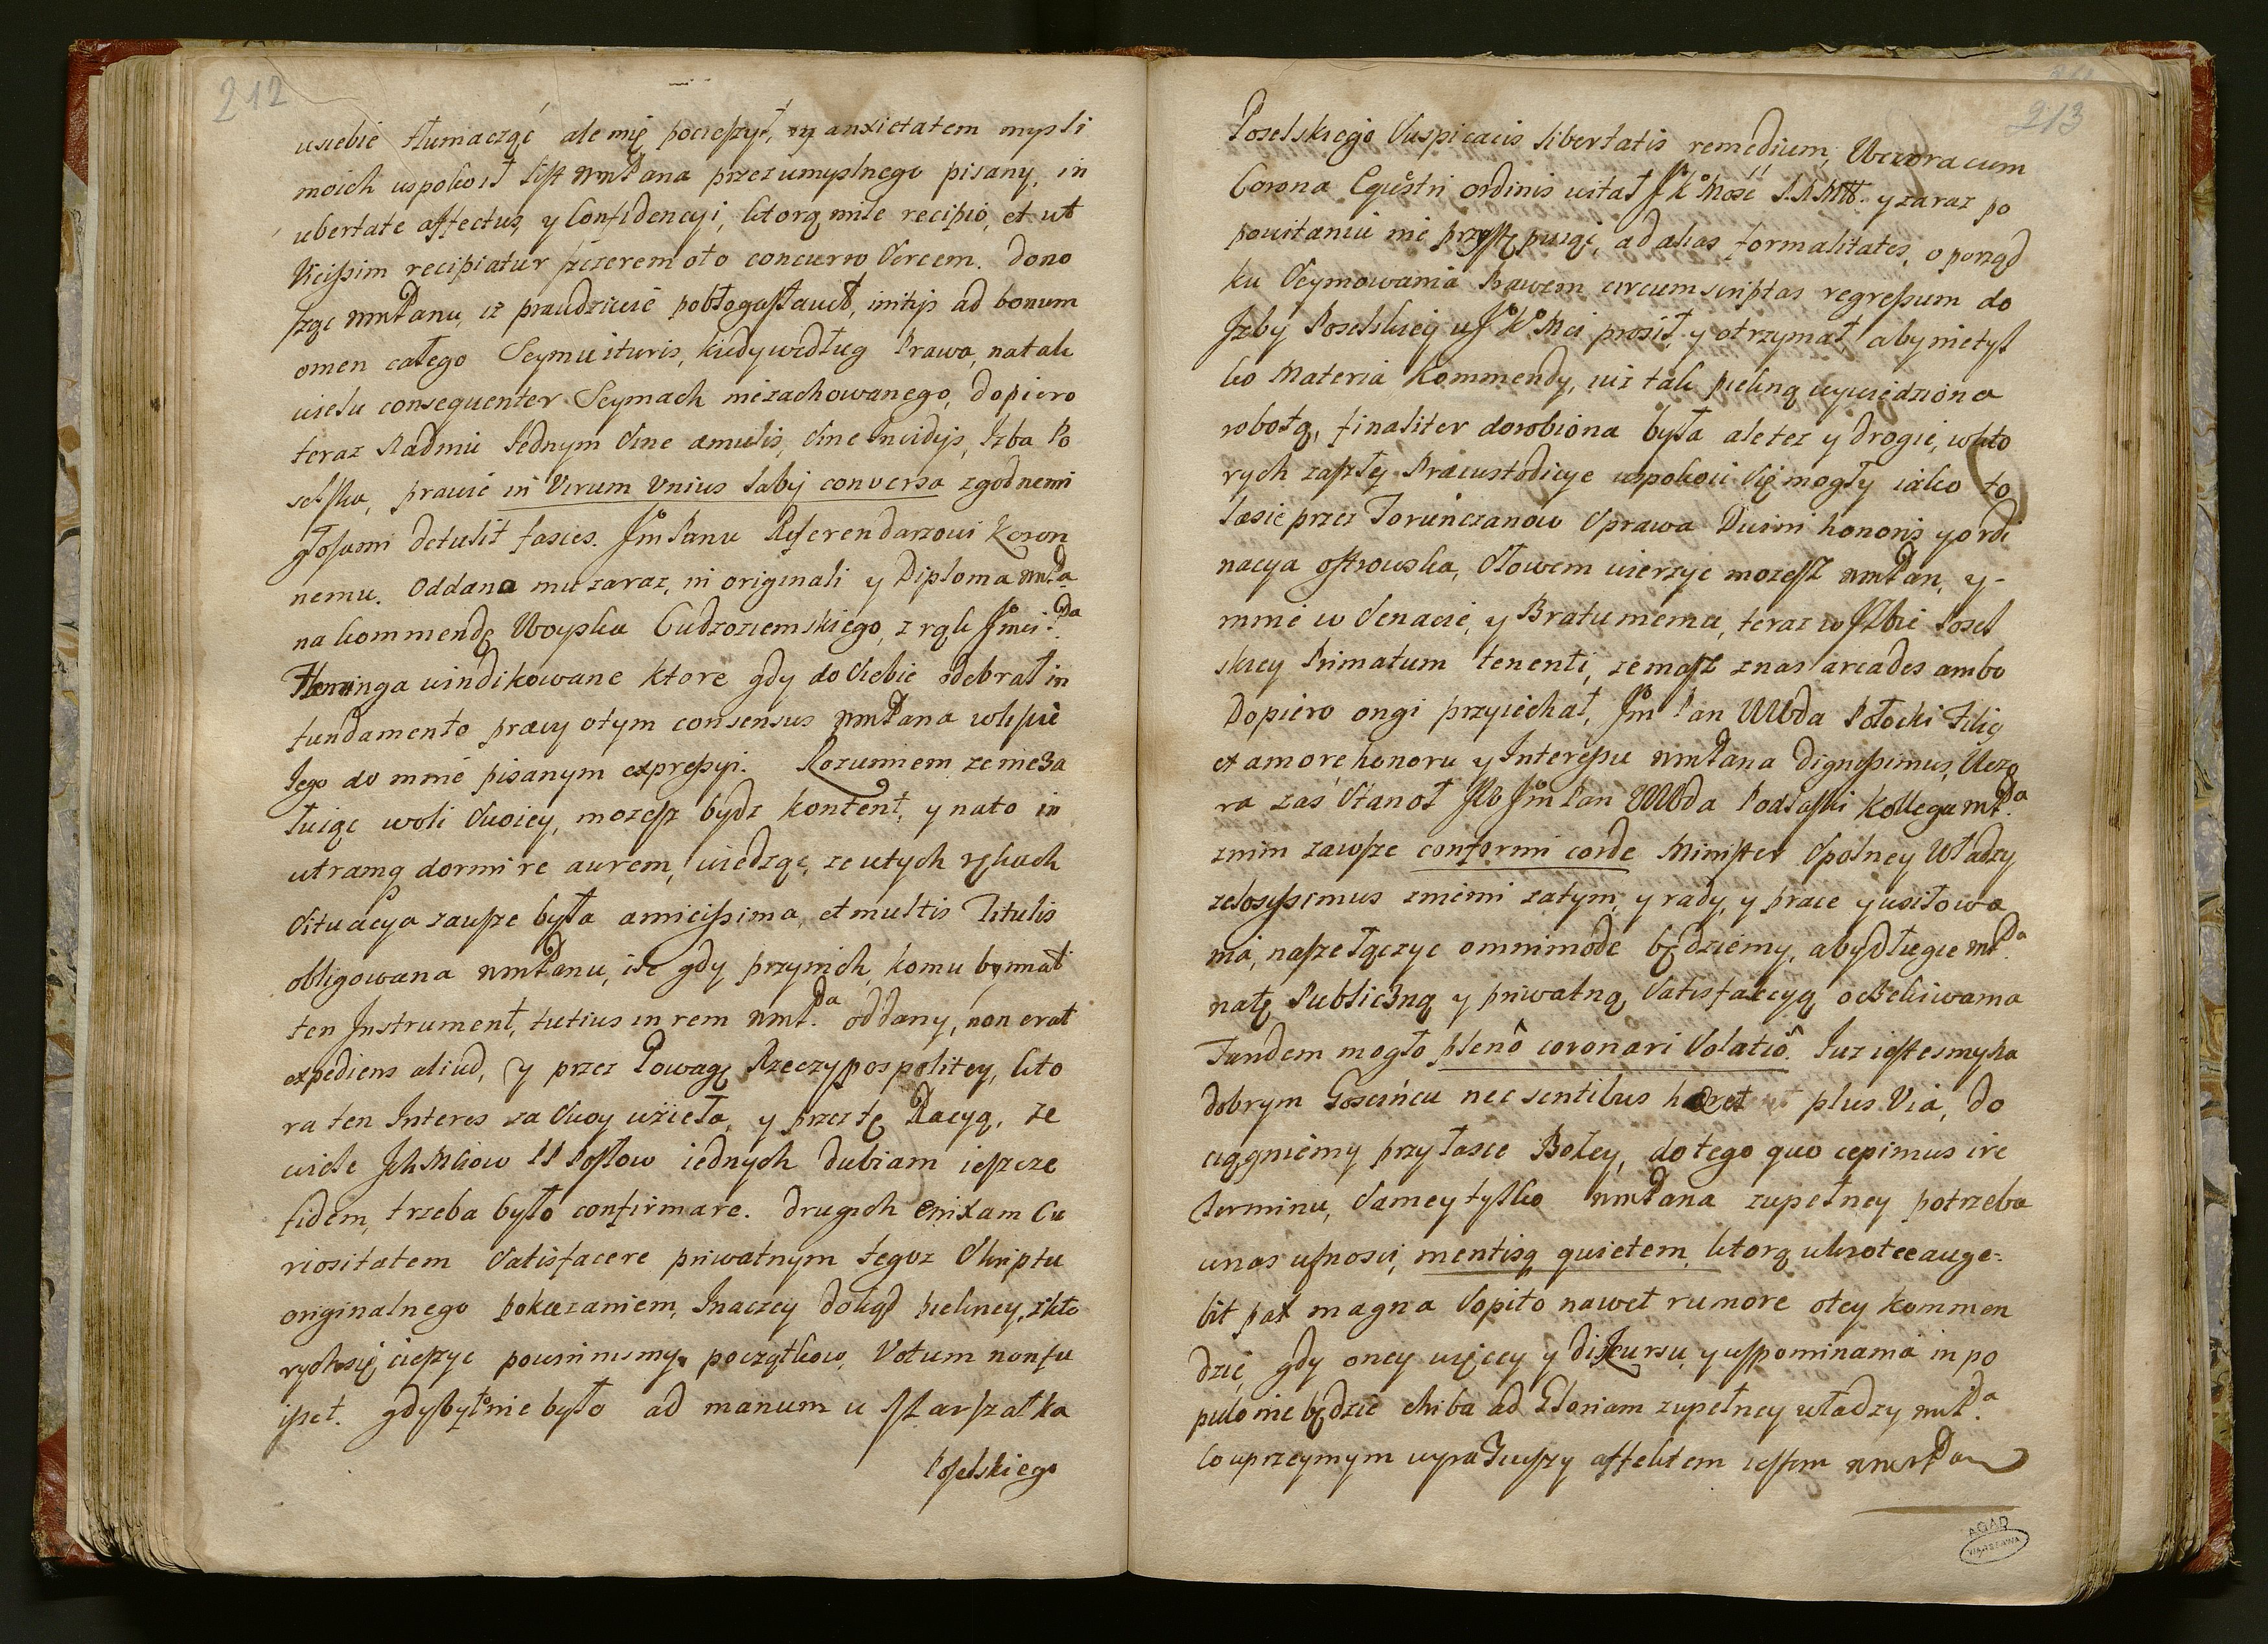 212
usiebie tłumaczyć ale mię pocieszył, y anxietatem mysli
moich uspokoił list WmPana przez umyslnego pisany, in
ubertate affectus, y Confidencyi, ktorą mile recipio, et ut
Vicissim recipiatur szczerem oto concurro Sercem. Dono
sząc WmPanu, iż prawdziwie pobłogosławił, initijs ad bonum
omen całego Seymu ituris, kiedy według Prawa, na tak
wielu consequenter Seymach niezachowanego, dopiero
teraz Nadmie Jednym Sine æmulis, Sine Invidijs, Izba Po
selska, prawie in Virum Vnius Labij conversa zgodnemi
głosami detulit fasces. Jm Panu Referendarzowi Koron
nemu. Oddana mu zaraz, in originali y Diploma WmPa
na kommendę Woyska Cudzoziemskiego, z rąk Jmci Pa
Fleminga windikowane ktore gdy do Siebie odebrał in
fundamento pracy o tym consensus WmPana w liście
Jego do mnie pisanym expressyi. Rozumiem ze nieza
łuiąc woli Swoiey, mozesz bydz kontent, y na to in
utramq dormire aurem, wiedząc, ze w tych rękach
Situacya zawsze była amicissima, et multis Titulis
obligowana WmPanu, ile gdy przy nich, komu by miał
ten Instrument, tutius in rem WmPa oddany, non erat
expediens aliud, y przez Powagę Rzeczypospolitey, kto
ra ten Interes za Swoy wzieła, y przez tę Racyą, ze
wiele Ich Mciow PP Posłow iednych dubiam ieszcze
fidem, trzeba było confirmare. drugich enixam Cu
riositatem Satisfacere prywatnym tegoz Skriptu
originalnego pokazaniem, Inaczey dokąd piekney, z kto
rych się cieszyc powinnismy, początkow, Votum non fu
isset. gdyby to nie było ad manum u Marszałka
Poselskiego
213
Poselskiego Auspicaciis libertatis remedium, Wczora cum
Corona Equestri ordinis witał JKMość P.N.Mił. y zaraz po
powitaniu nie przystępuiąc, ad alias formalitates, o porząd
ku Seymowania Prawem circumscriptas regressum do
Izby Poselskiey u JKMci prosił, y otrzymał, aby nie tyl
ko Materia Kommendy, iuż tak piekną wywiedziona
robotą, finaliter dorobiona była ale tez y drogie, w kto
rych zaszły Præcustodicye uspokoić się mogły iako to
Læsie przez Toruńczanow Sprawa Divini honoris y ordi
nacya ostrowska, Słowem wierzyc mozesz WmPan, y -
mnie w Senacie, y Bratu memu, teraz w Izbie Posel
skiey Primatum tenenti, ze masz z nas arcades ambo
Dopiero ongi przyiechał, Jm Pan Wda Połocki Filią
et amore honoru y Interessu WmPana Dignissimus, Wczo
ra zaś Stanoł Jm Pan Wda Podlaski Kollega WmPa
z nim zawsze conformi corde Minister Spolney Władzy
zelosissimus z niemi zatym, y rady, y prace y usiłowa
nia, nasze łączyc omnimode będziemy, aby długie WmPa
na tę Publiczną y prywatną Satisfakcyą oczekiwania
Tandem mogło plenô coronari Solatiô. Iuz iestesmy na
dobrym Goscińcu nec sentibus hæret plus Via, do
ciągniemy przy łasce Bozey, do tego quo cepimus ire
Terminu, Samey tylko WmPana zupełney potrzeba
u nas ufnosci, mentisq quietem, ktorą wkrotce auge=
bit pax magna Sopito nawet rumore o tey kommen
dzie, gdy oney więcey y diskursu, y wspominania in po
pulo nie będzie chiba ad Gloriam zupełney władzy WmPa
Co uprzeymym wyraziwszy affektem iestem WmPan
AGAD
WARSZAWA